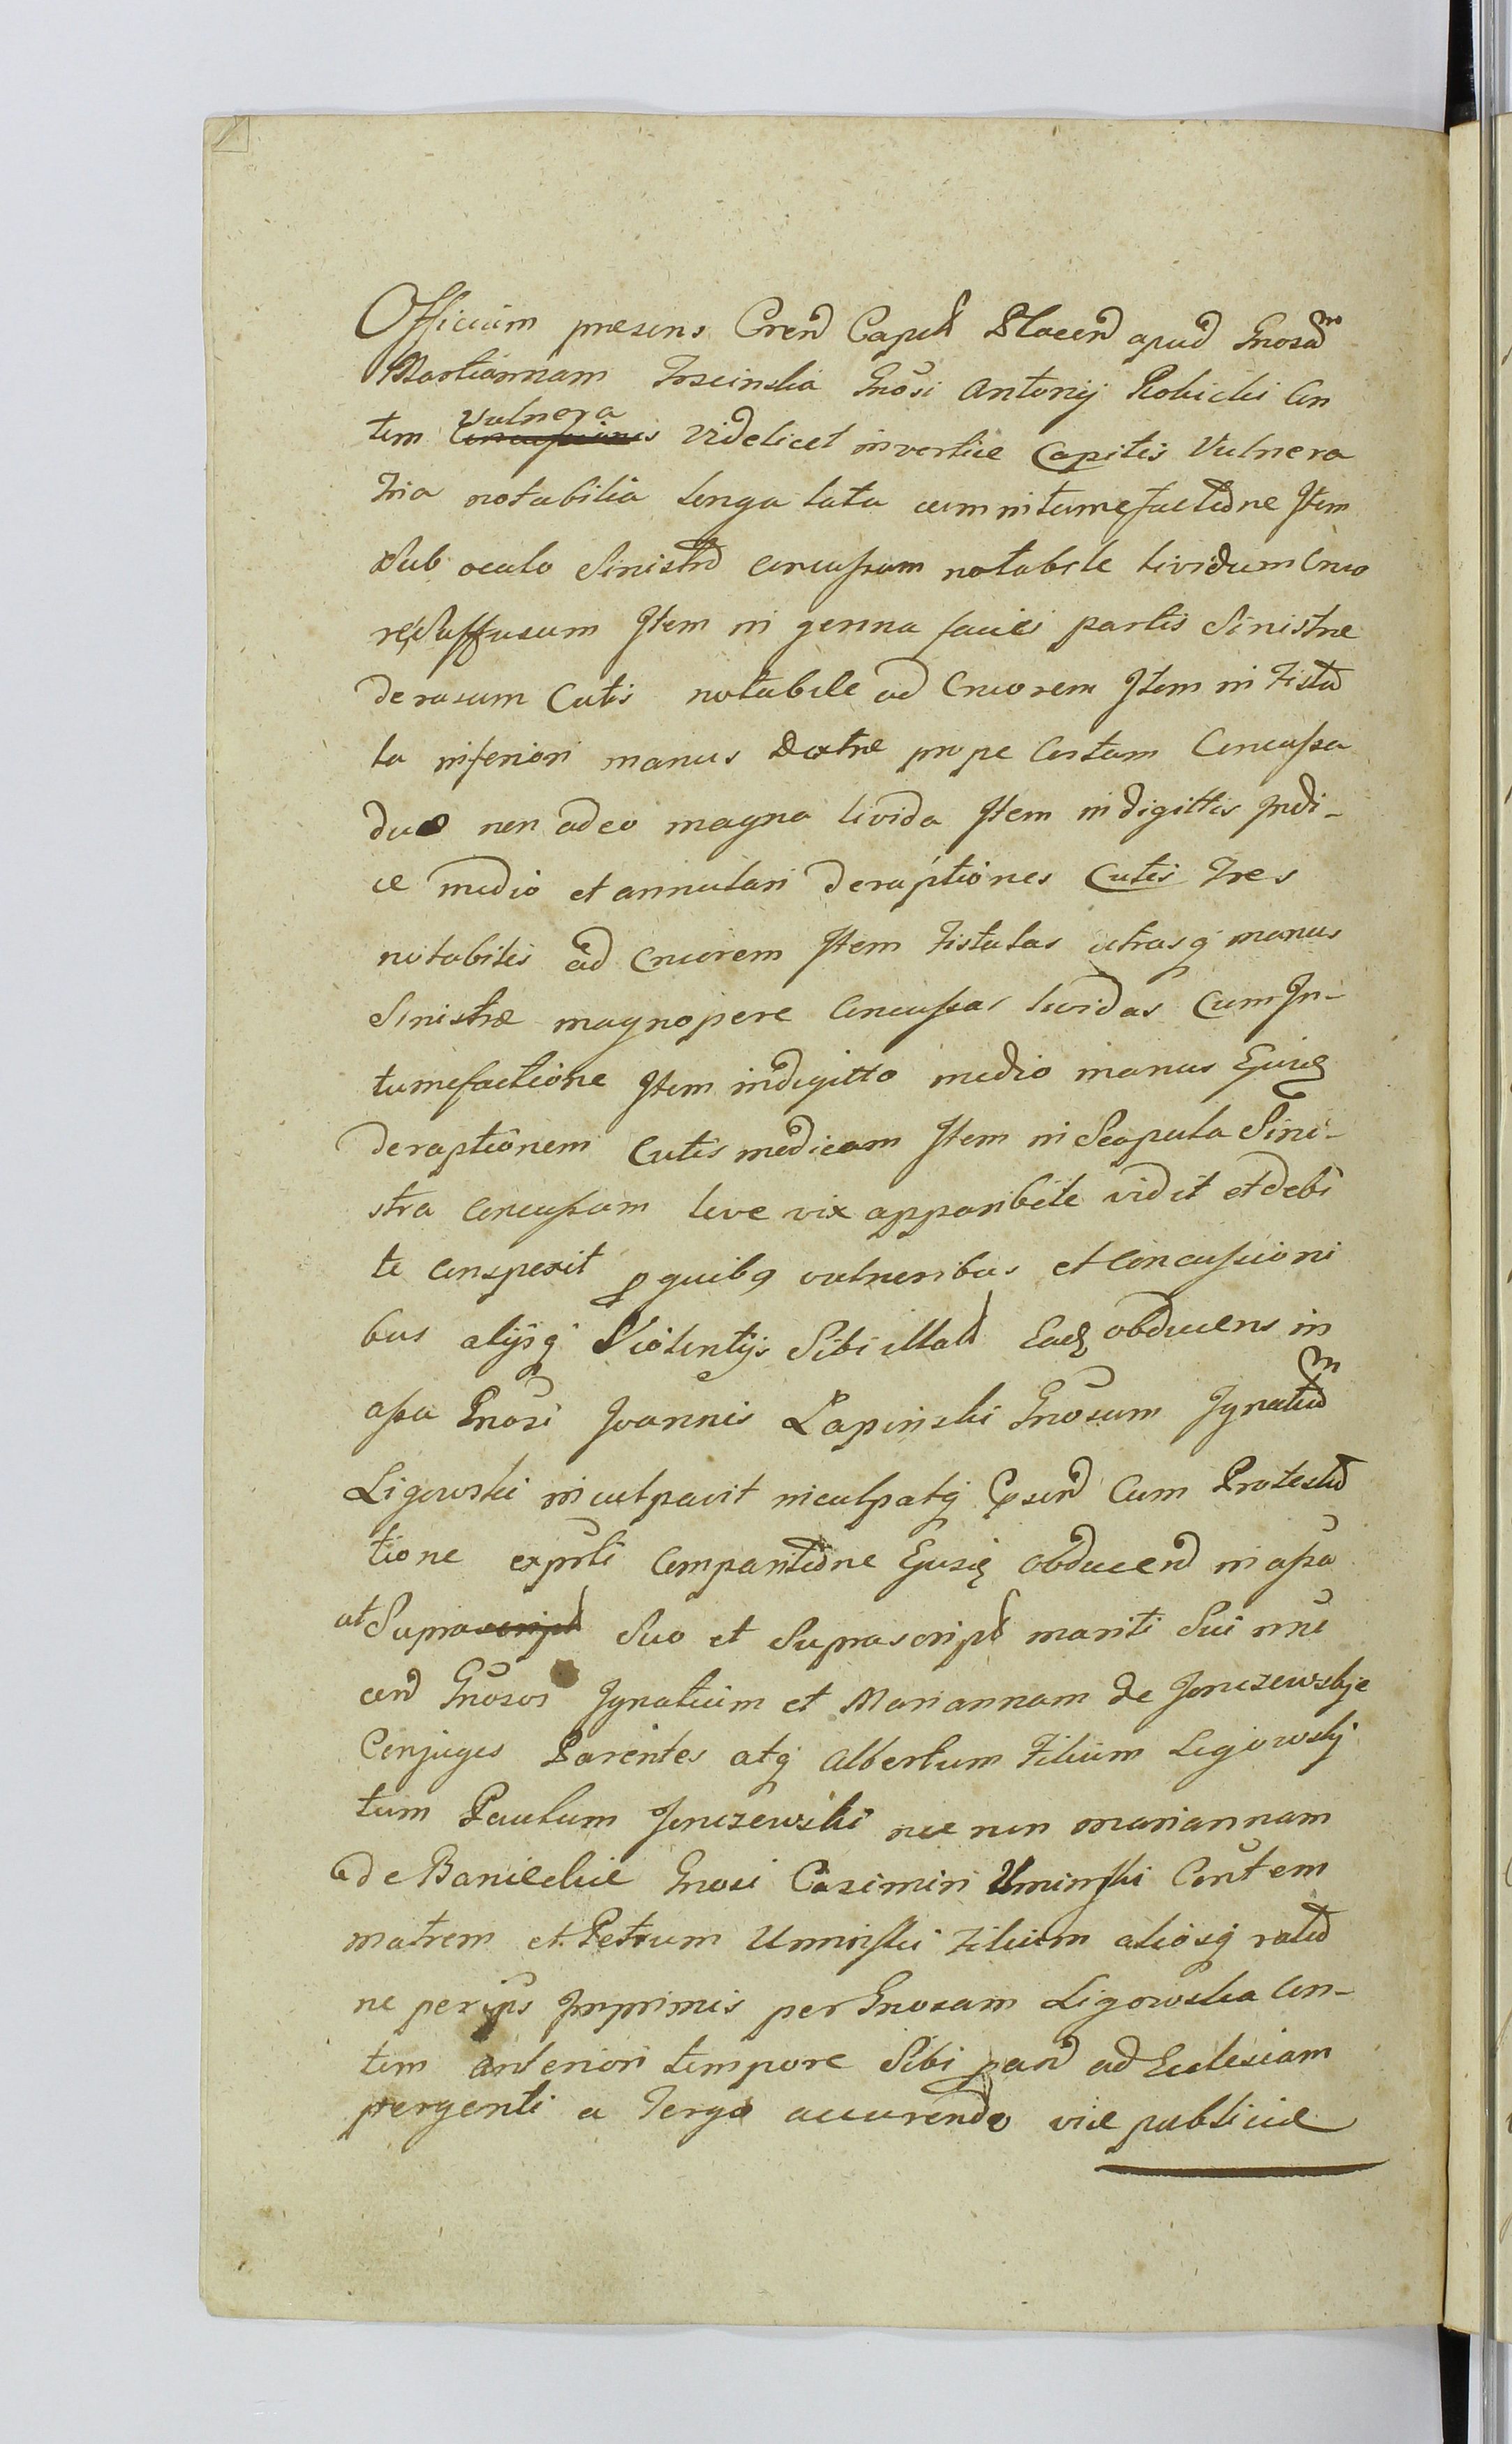 Officium præsens Crend Capitd Plocend apud Gnosam
Martiannam Trscinska Gnosi Antonij Robicki Con
tem Vulnera videlicet in vertice Capitis Vulnera
tria notabilia longa lata cum intumefactione Item
Sub oculo Sinistro concussum notabile lividum Cruo
re Suffusum Item in genna faciei partis Sinistræ
derasum Cutis notabile ad Cruorem Item in Fistu
la inferiori manus dextræ prope Costam Concussa
duo non adeo magna livida Item in digittis Indi-
ce medio et annulari deraptiones Cutis tres
notabiles ad Cruorem Item Fistulas utrasq manus
Sinistræ magnopere Concussas lividas Cum In-
tumefactione Item in digitto medio manus Ejusd
deraptionem Cutis modicam Item in Scapula Sini-
stra concussum leve vix apparibile vidit et debi
te conspexit p quibq vulneribus et Concussioni
bus alijsq Violentijs Sibi illatd Eadq obducens in
assa Gnosi Joannis Lapinski Gnosum Ignatium
Ligowski inculpavit inculpatq Cum Protesta
tione expnti Comparitione Ejusdq obducend in assa
ut Supra Suo et Suprascript mariti Sui nne
end Gnosos Ignatium et Mariannam de Jonczewskje
Conjuges Parentes atq Albertum Filium Ligowskj
tum Paulum Jonczewski nec non Mariannam
de Banieckie Gnosi Casimiri Uminski Contem
matrem et Petrum Uminski Filium aliosq ratio
ne per ipsos Imprimis per Gnosam Ligowska Con-
tem anteriori tempore Sibi pand ad Ecclesiam
pergenti a Tergo accurendo viæ publicæ